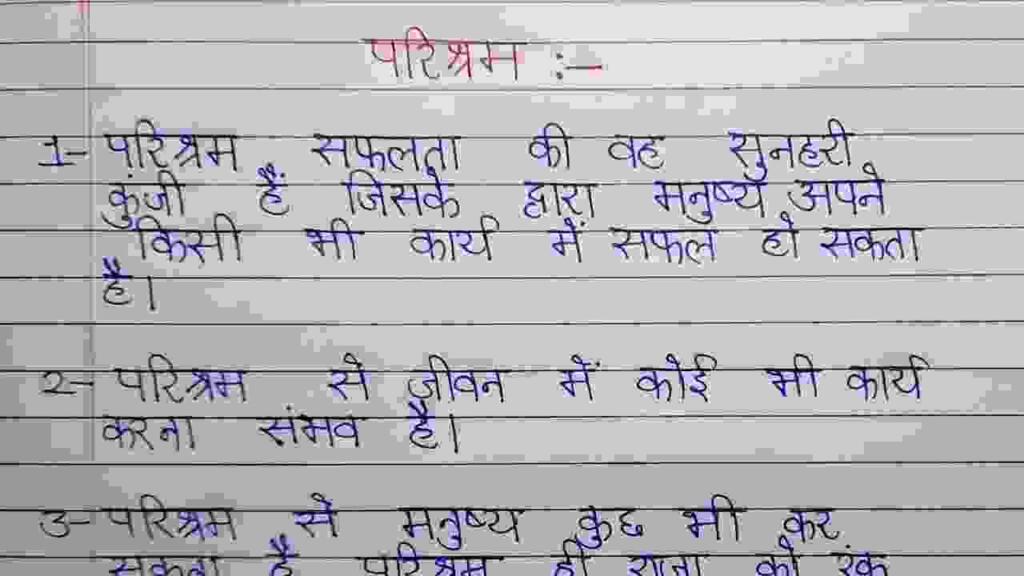 परिश्रम :-
1- परिश्रम सफलता की वह सुनहरी
कुंजी हैं जिसके द्वारा मनुष्य अपने
किसी भी कार्य में सफल हो सकता
है।
2- परिश्रम से जीवन में कोई भी कार्य
करना संभव है।
3- परिश्रम से मनुष्य कुछ भी कर
सकता है परिश्रम ही राजा को रंक